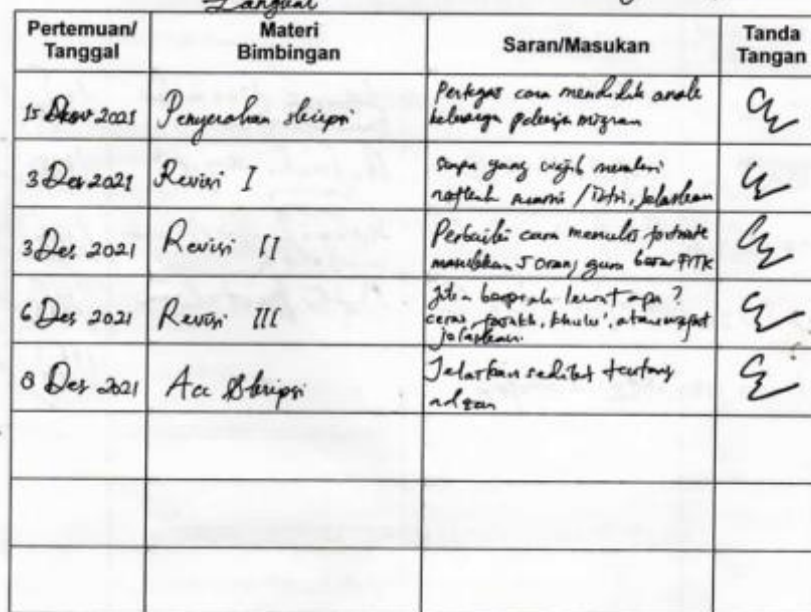 Langkat
Pertemuan/
Tanggal
Materi
Bimbingan
Saran/Masukan
Tanda
Tangan
15 2021 Penyerahan skripsi
Pertegas cara mendidik anak
keluarga pekerja migran
3 Des 2021 Revisi I
siapa yang wajib memberi
nafkah suami / istri, jelaskan
3 Des 2021 Revisi II
Perbaiki cara menulis footnote
masukkan 5 orang guru besar FITK
6 Des 2021 Revisi III
apa?
cerai, fasakh, khulu',
jelaskan
8 Des 2021 Acc Skripsi
Jelaskan sedikit tentang